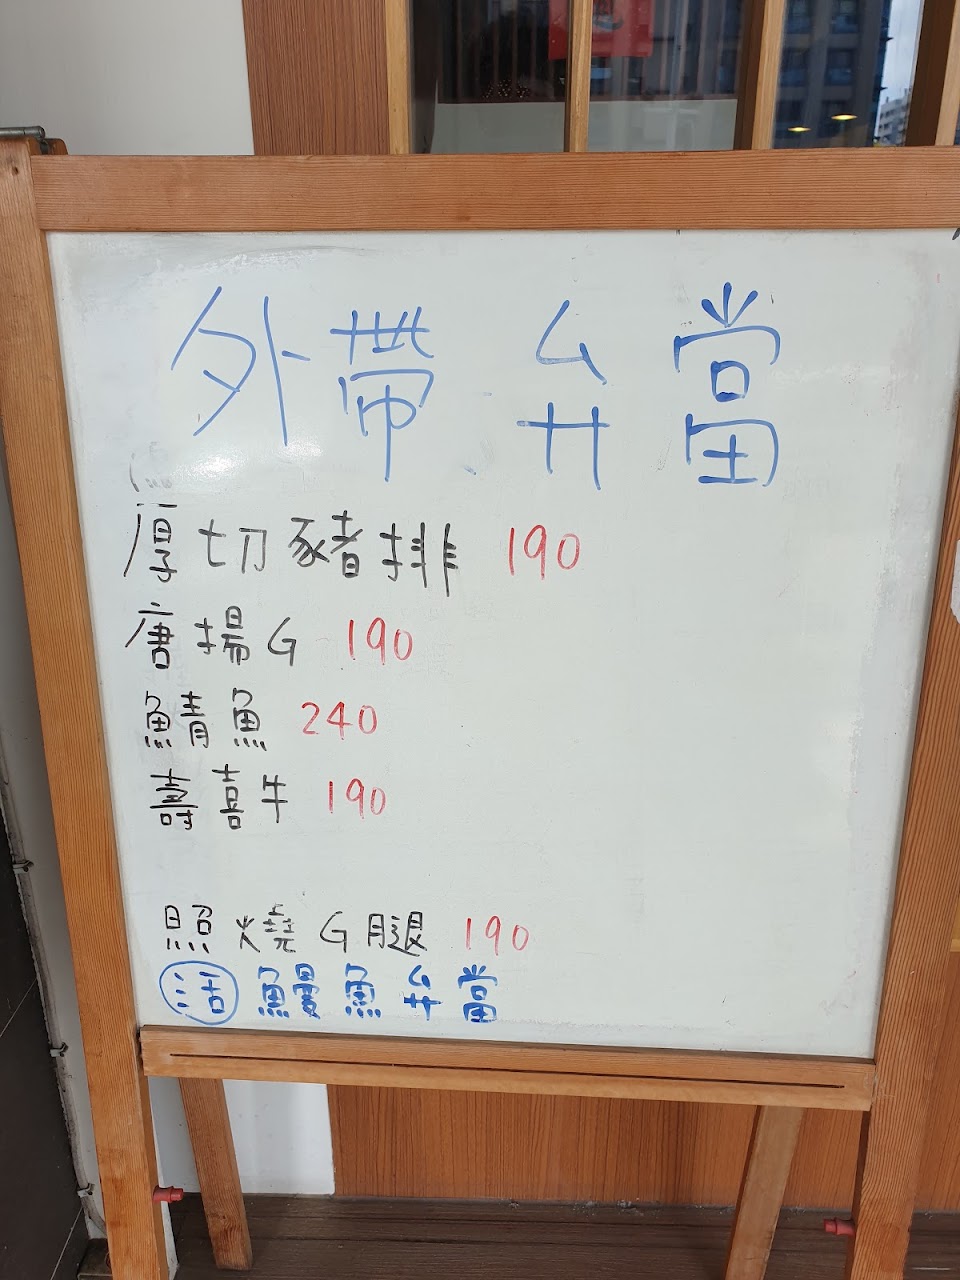 外帶弁當
厚切豬排 190
唐揚G 190
鯖魚 240
壽喜牛 190
照燒G腿 190
活 鰻魚弁當